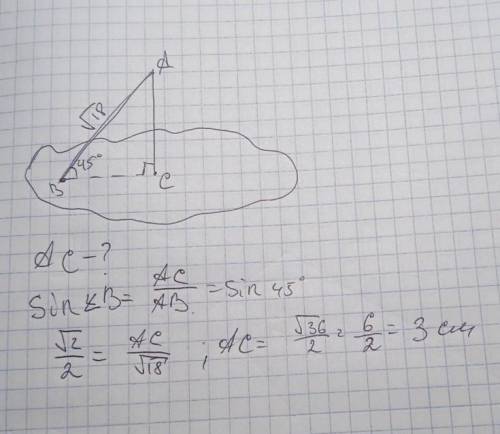 A
√18
45°
B
C
AC-?
Sin∠B= AC/AB =Sin 45°
√2/2 = AC/√18 ; AC= √36/2 = 6/2 = 3 см